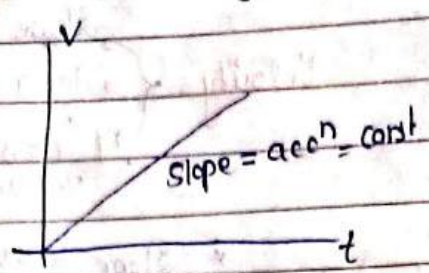 V
Slope = accⁿ = const
t